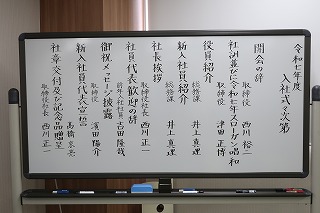 令和七年度 入社式々次第
開会の辞
取締役 西川 裕一
社訓並びに令和七年スローガン唱和
取締役 津田 正博
役員紹介
総務課 井上 真理
新入社員紹介
総務課 井上 真理
社長挨拶
取締役社長 西川 正一
社員代表歓迎の辞
前年入社社員 吉田 隆哉
御祝メッセージ披露
取締役 濱田 陽介
新入社員代表宣誓
髙橋 京亮
社章交付及び記念品贈呈
取締役社長 西川 正一